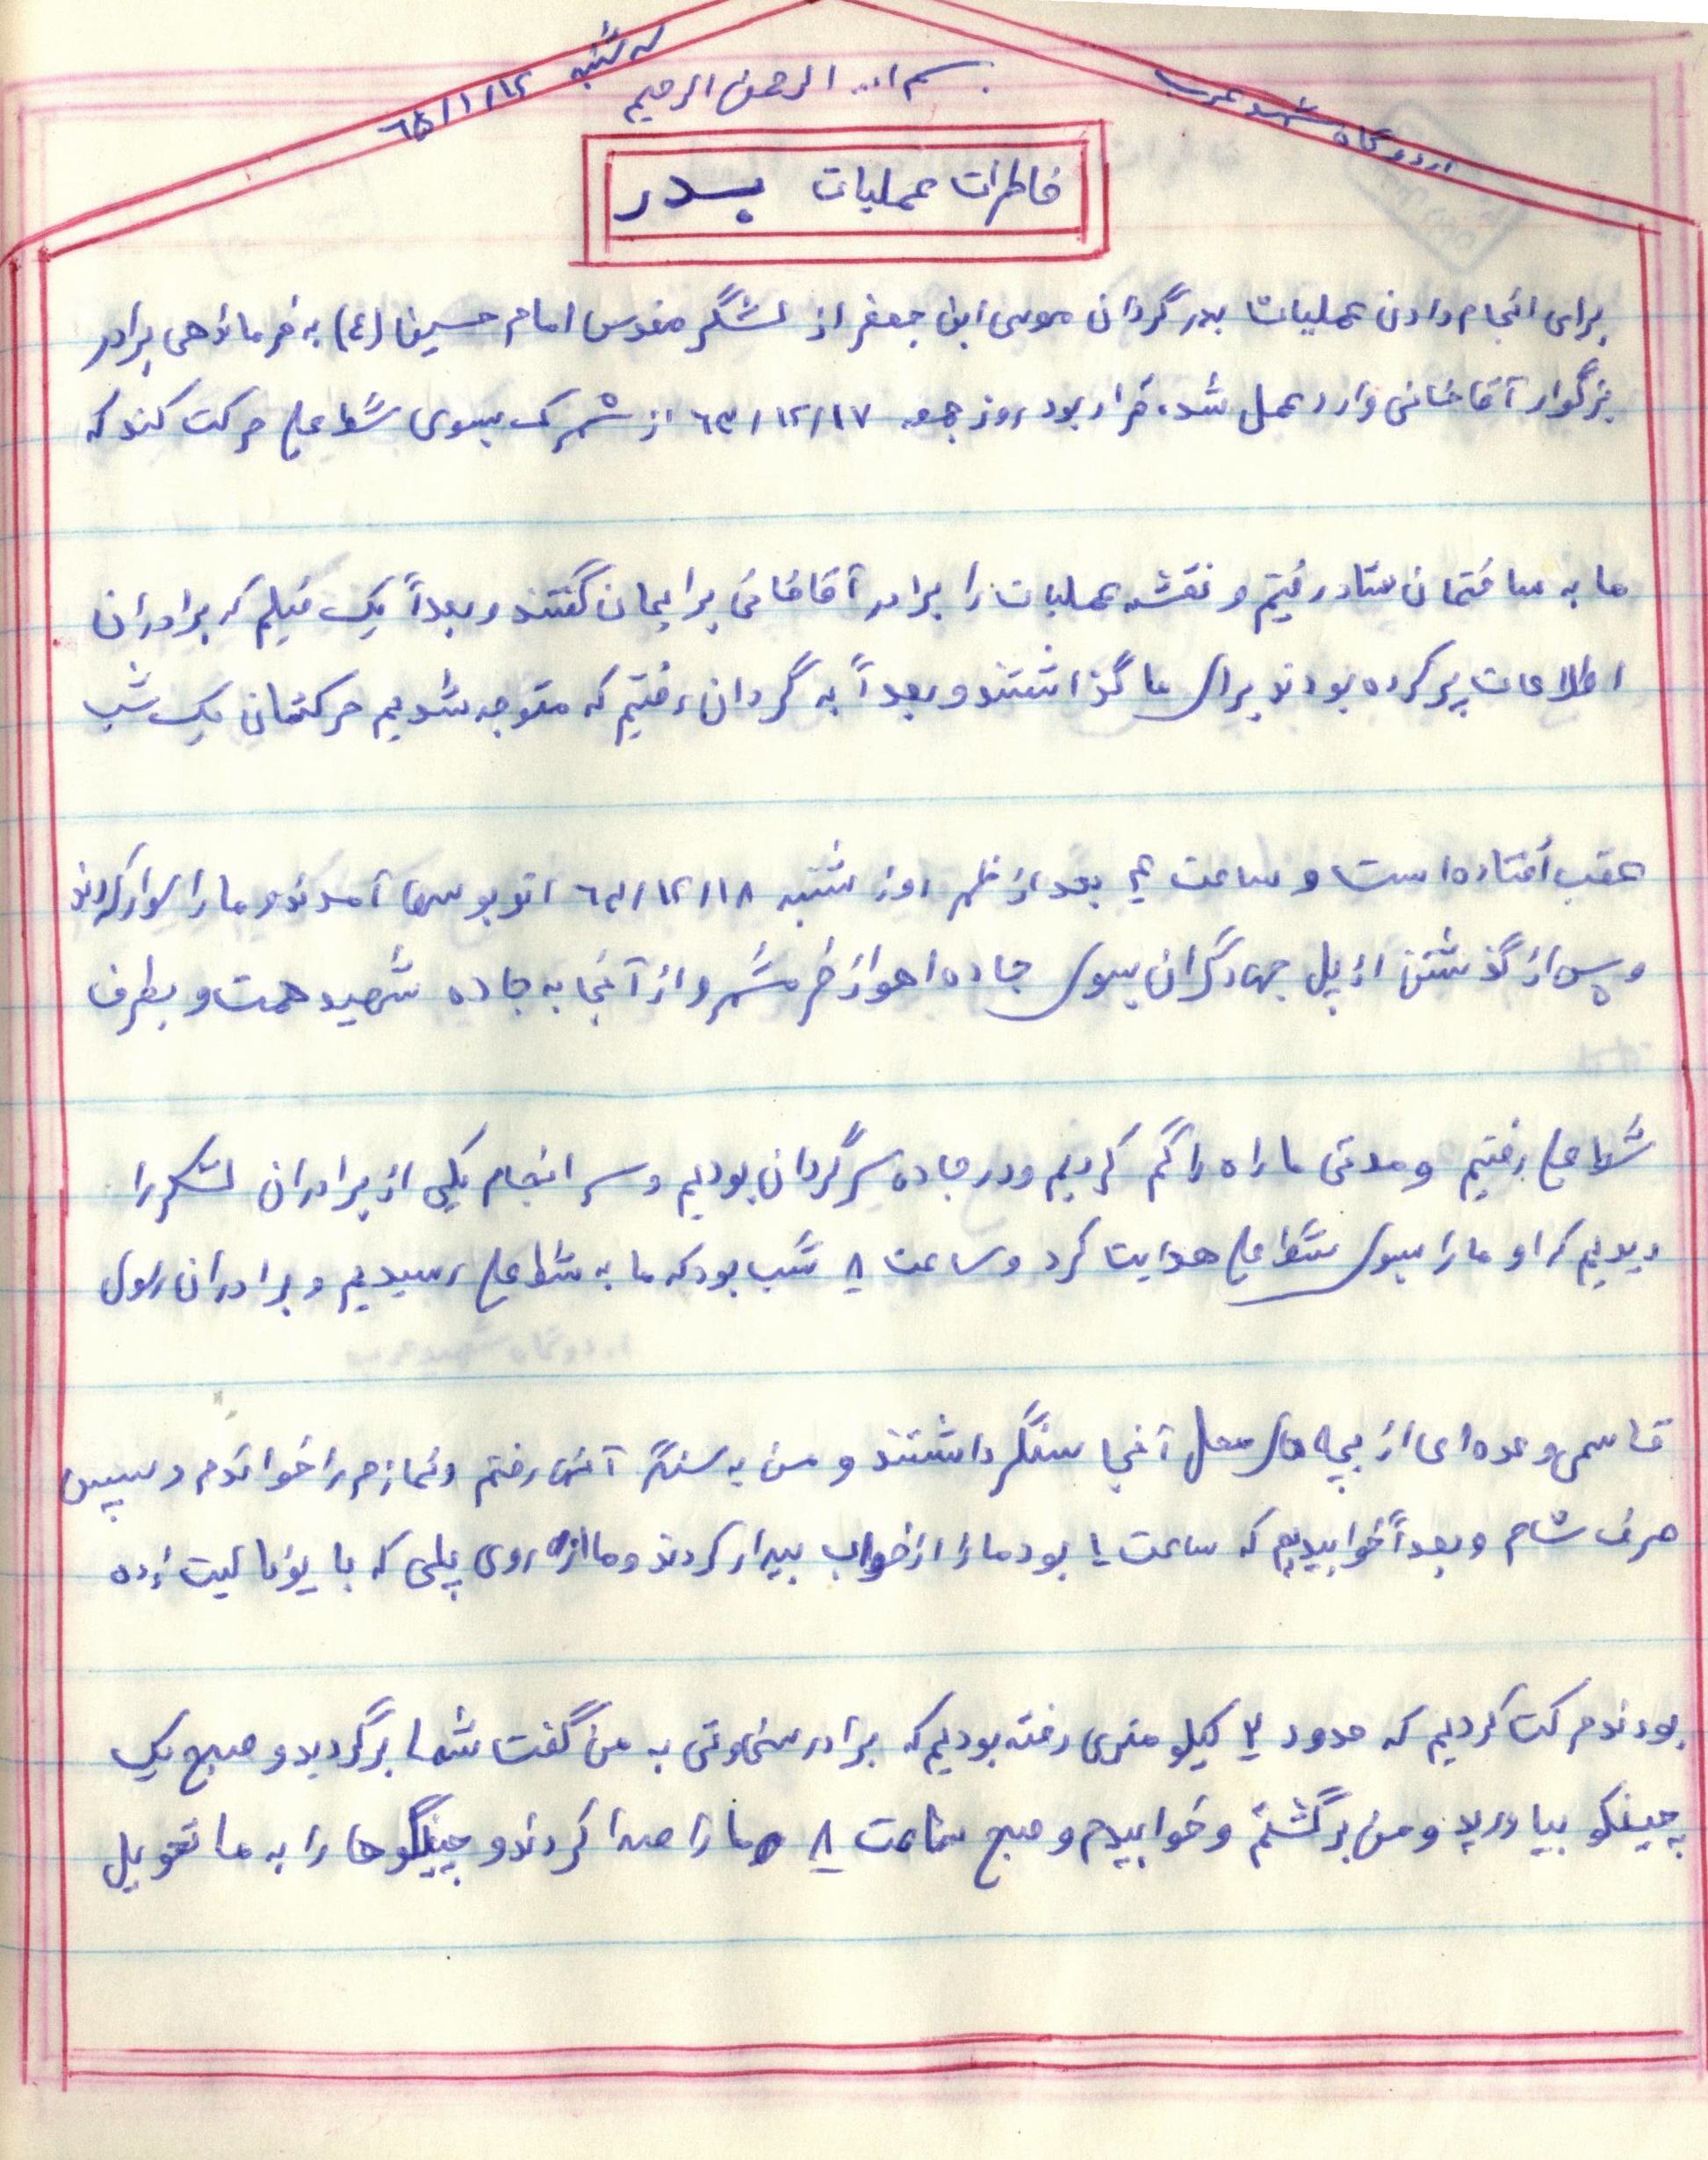 اردوگاه شهید عرب
بسم ا... الرحمن الرحیم
سه شنبه ۶۵/۱/۱۲
خاطرات عملیات بدر
برای انجام دادن عملیات بدر گردان موسی ابن جعفر از لشگر مقدس امام حسین (ع) به فرماندهی برادر
بزرگوار آقاخانی وارد عمل شد، قرار بود روز جمعه ۶۳/۱۲/۱۷ از شهرک بسوی شط علی حرکت کند که
ما به ساختمان ستاد رفتیم و نقشه عملیات را برادر آقاخانی برایمان گفتند و بعداً یک فیلم که برادران
اطلاعات پر کرده بودند برای ما گذاشتند و بعداً به گردان رفتیم که متوجه شدیم حرکتمان یک شب
عقب افتاده است و ساعت ۴ بعد از ظهر روز شنبه ۶۳/۱۲/۱۸ اتوبوسها آمدند و ما را سوار کردند
و پس از گذشتن از پل جهادگران بسوی جاده اهواز خرمشهر و از آنجا به جاده شهید همت و بطرف
شط علی رفتیم و مدتی ما راه را گم کردیم و در جاده سرگردان بودیم و سرانجام یکی از برادران لشکر را
دیدیم که او ما را بسوی شط علی هدایت کرد و ساعت ۸ شب بود که ما به شط علی رسیدیم و برادران رسول
قاسمی و عده ای از بچه های محل آنجا سنگر داشتند و من به سنگر آنها رفتم و نمازم را خواندم و سپس
صرف شام و بعداً خوابیدیم که ساعت ۱ بود ما را از خواب بیدار کردند و ما از روی پلی که با یونالیت زده
بودند حرکت کردیم که حدود ۲ کیلو متری رفته بودیم که برادر سخاوتی به من گفت شما برگردید و صبح یک
چینکو بیاورید و من برگشتم و خوابیدم و صبح ساعت ۸ ما را صدا کردند و چینگو ها را به ما تحویل